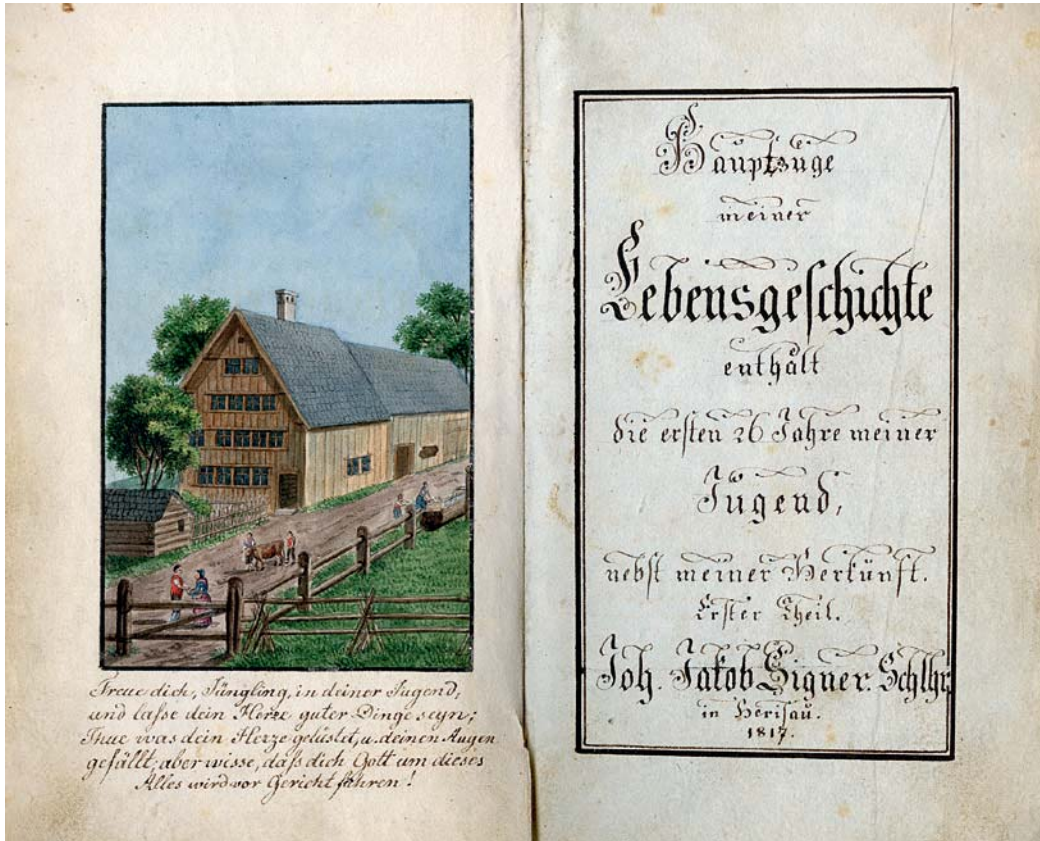 Freue dich, Jüngling, in deiner Jugend,
und lasse dein Herze guter Dinge seyn;
Thue was dein Herze gelüstet, u. deinen Augen
gefällt, aber wisse, daſs dich Gott um dieses
Alles wird vor Gericht führen!
Hauptzüge
meiner
Lebensgeſchichte
enthält
die erſten 26 Jahre meiner
Jugend,
nebſt meiner Herkunft.
Erſter Theil.
Joh. Jakob Signer. Schlhr.
in Heriſau.
1817.